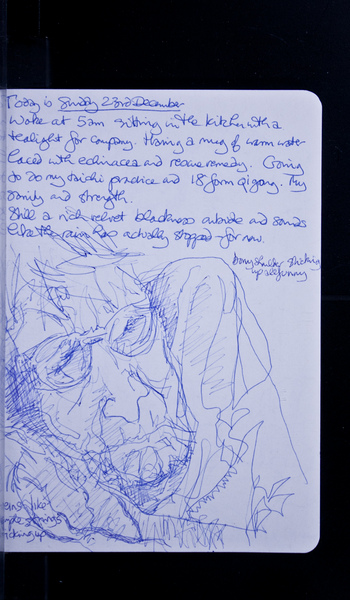 Today is Sunday 23rd December
Woke at 5am sitting in the kitchen with a
tealight for company. Having a mug of warm water
laced with echinacea and rescue remedy. Going
to do my taichi practice and 18 form Qigong. Try
sanity and strength.
Still a rich velvet blackness outside and sounds
like the rain has actually stopped - for now.
bony shoulder sticking
up all funny
like
sticking up